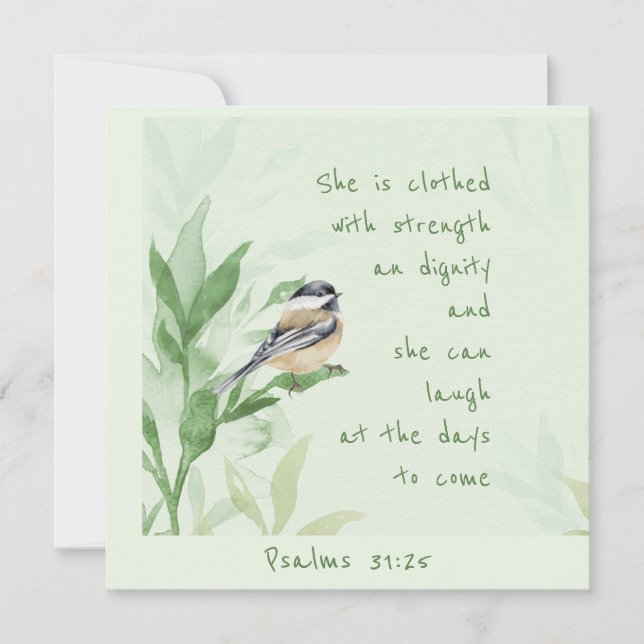 She is clothed
with strength
an dignity
and
she can
laugh
at the days
to come
Psalms 31:25